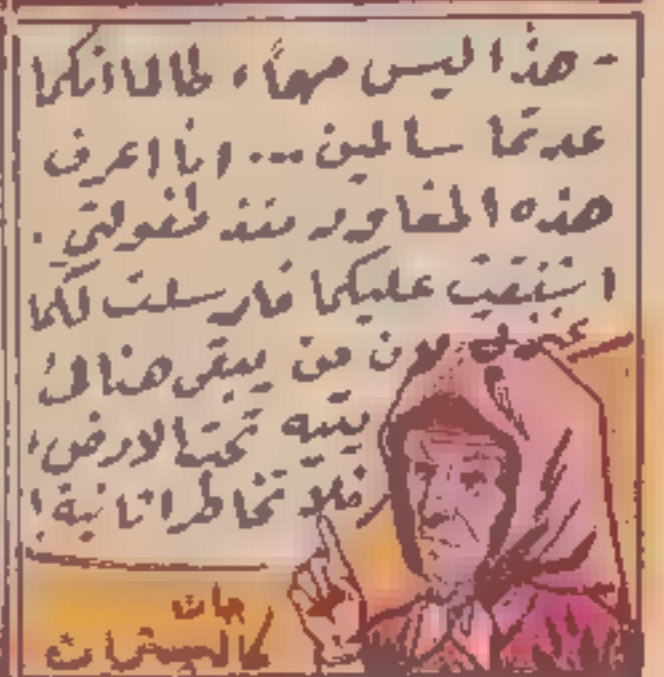 - هذا ليس مهماً، طالما انكما
عدتما سالمين... انا اعرف
هذه المغاور منذ طفولتي.
اشفقت عليكما فارسلت لكما
لان من يبقى هناك
يتيه تحت الارض،
فلا تخاطرا ثانية!
جان